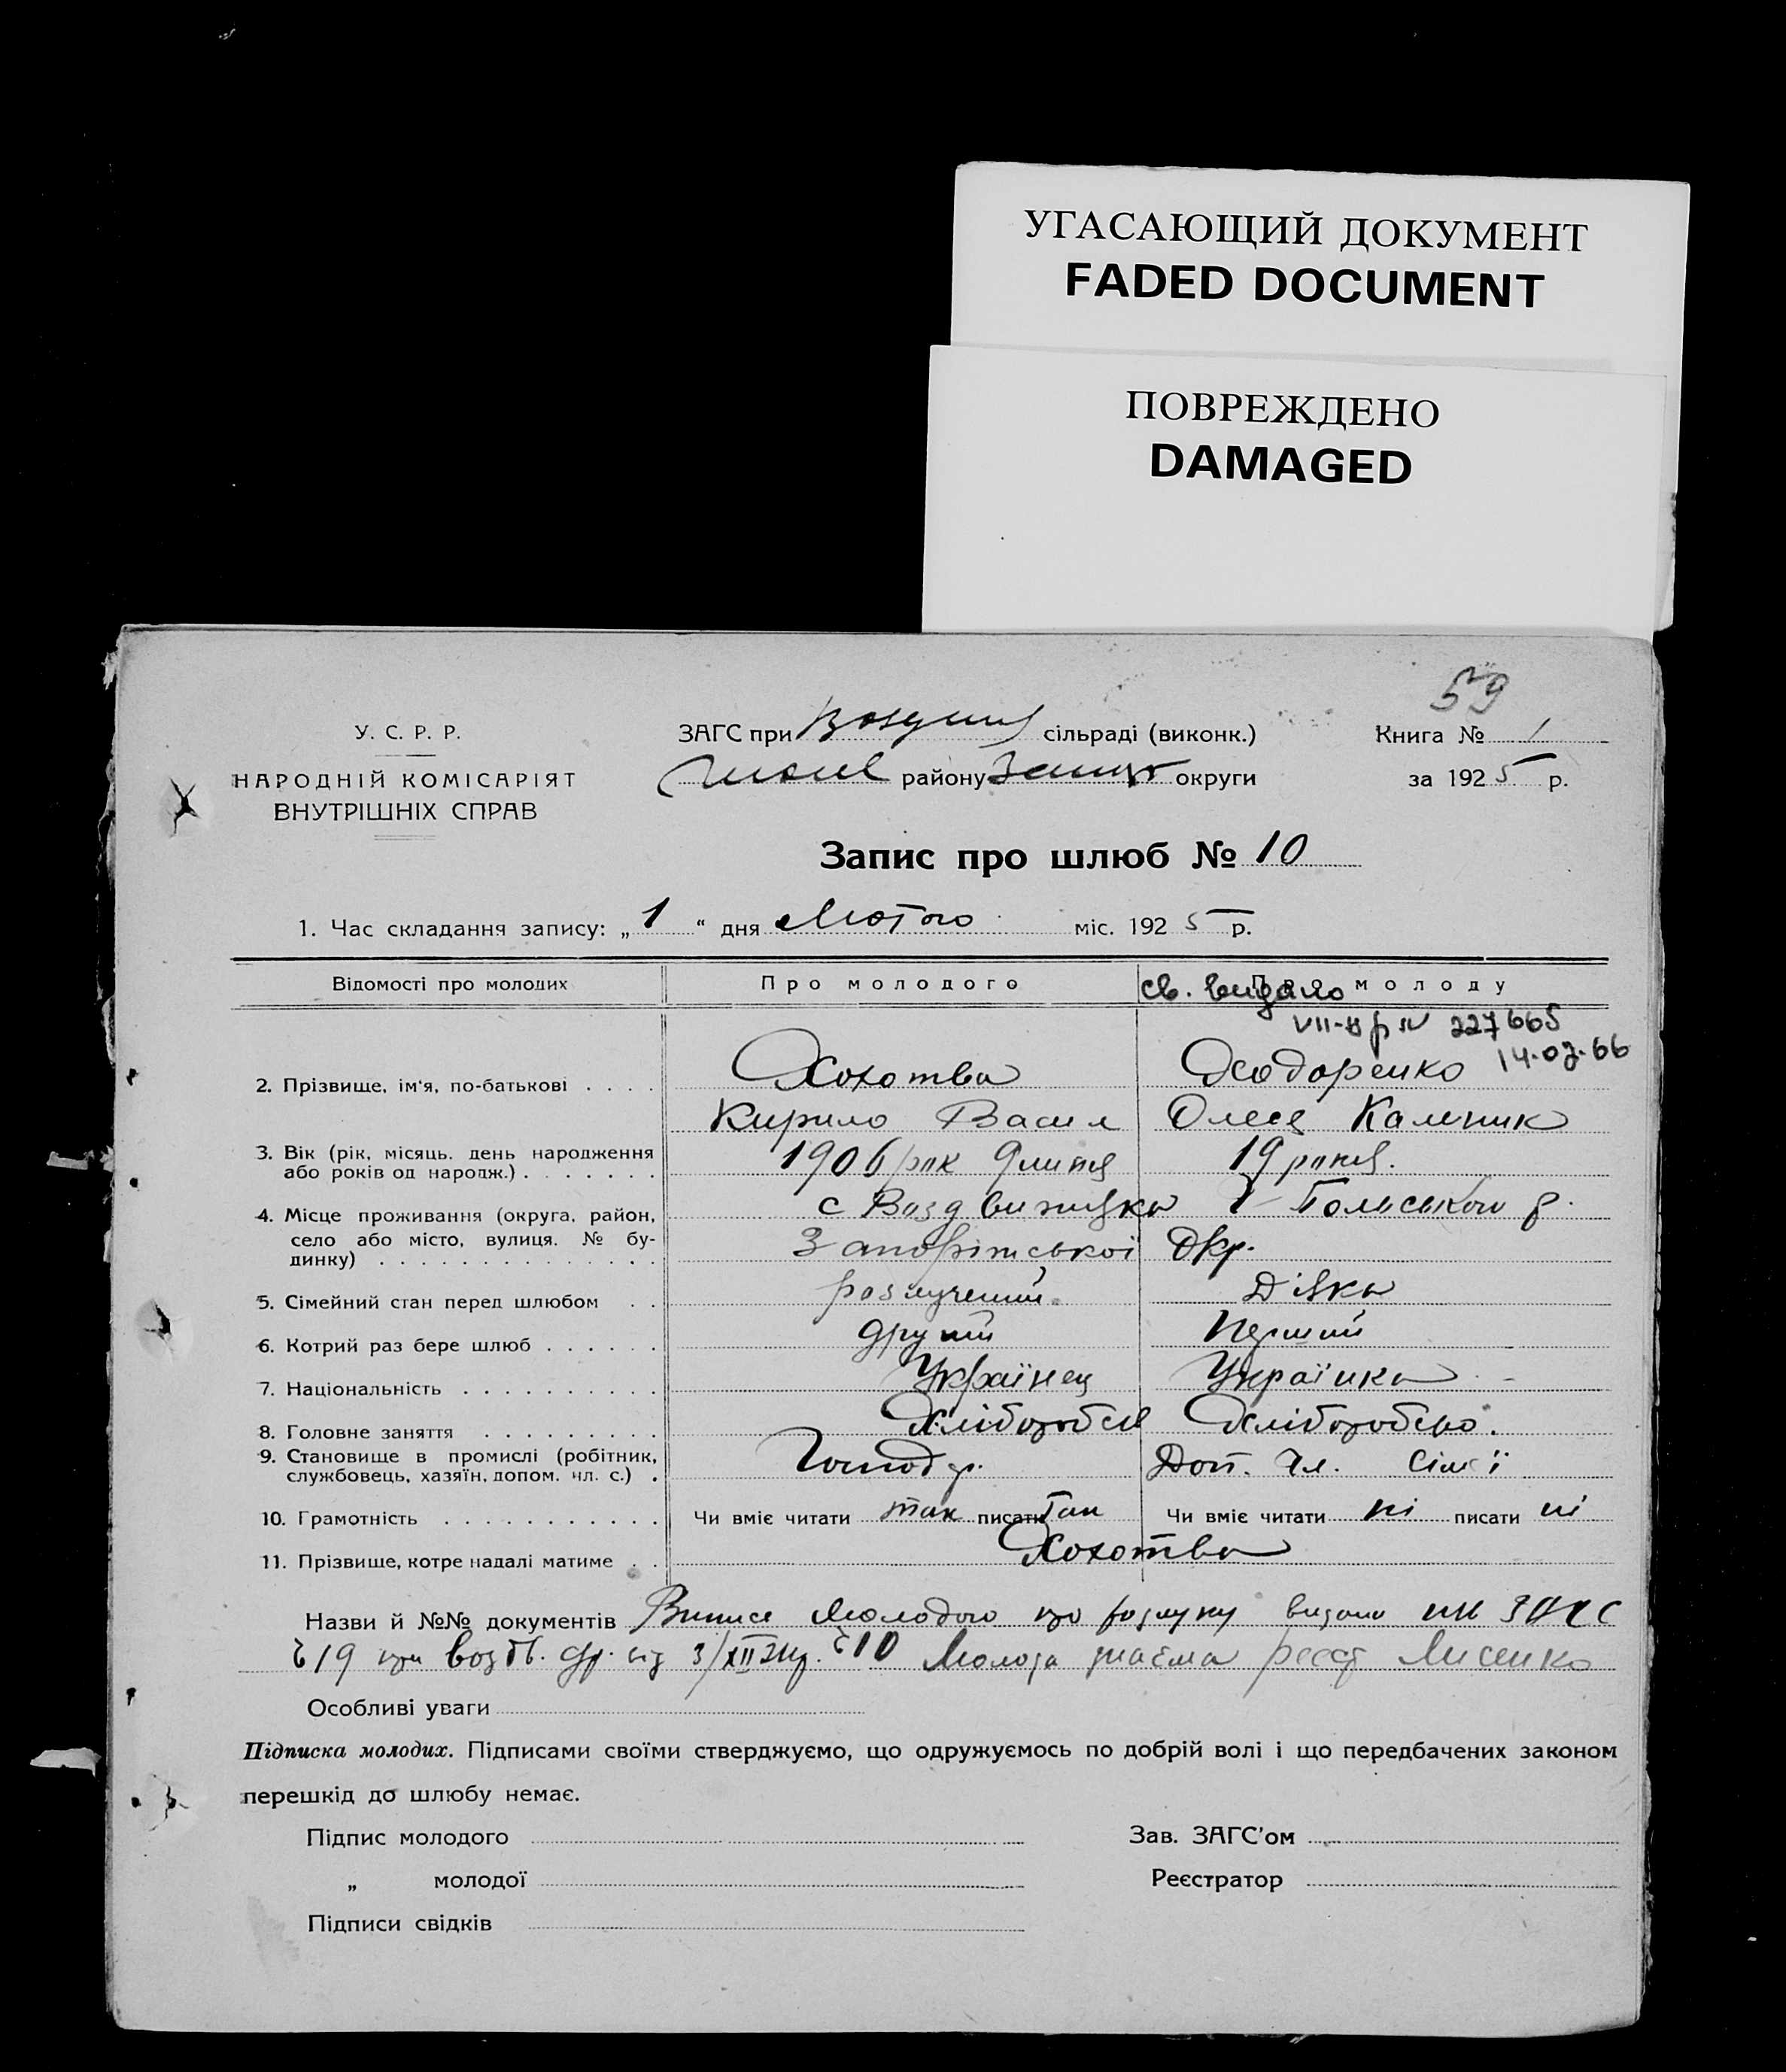 УГАСАЮЩИЙ ДОКУМЕНТ
FADED DOCUMENT
ПОВРЕЖДЕНО
DAMAGED
59
У. С. Р. Р.
НАРОДНІЙ КОМІСАРІЯТ
ВНУТРІШНІХ СПРАВ
ЗАГС при сільраді (виконк.)
району округи
Книга № 1
за 1925 р.
Запис про шлюб № 10
1. Час складання запису: „ 1 “ дня Лютого міс. 1925 р.
Відомості про молодих Про молодого Про молоду
св. видано
227665
14.07.66
2. Прізвище, ім'я, по-батькові Хохотва Феодоренко
Кирило Васил Олеся Калиник
3. Вік (рік, місяць, день народження або років од народж.) 1906 рік 9 липня 19 років.
4. Місце проживання (округа, район, село або місто, вулиця, № будинку) с Воздвижівка Г Польського р.
Запоріжської Окр.
5. Сімейний стан перед шлюбом розлучений Дівка
6. Котрий раз бере шлюб другий Перший
7. Національність Українец Українка
8. Головне заняття Хлібороб Хліборобство.
9. Становище в промислі (робітник, службовець, хазяїн, допом. чл. с.) Господр. Доп. Чл. сімї
10. Грамотність Чи вміє читати так писати так Чи вміє читати ні писати ні
11. Прізвище, котре надалі матиме Хохотва
Назви й №№ документів Виписа Молодого про розлуку видано ЗАГС
19 при возд. від 3/XII 24 р. 10 Молода реєст Лисенко
Особливі уваги
Підписка молодих. Підписами своїми стверджуємо, що одружуємось по добрій волі і що передбачених законом
перешкід до шлюбу немає.
Підпис молодого
„ молодої
Підписи свідків
Зав. ЗАГС'ом
Реєстратор